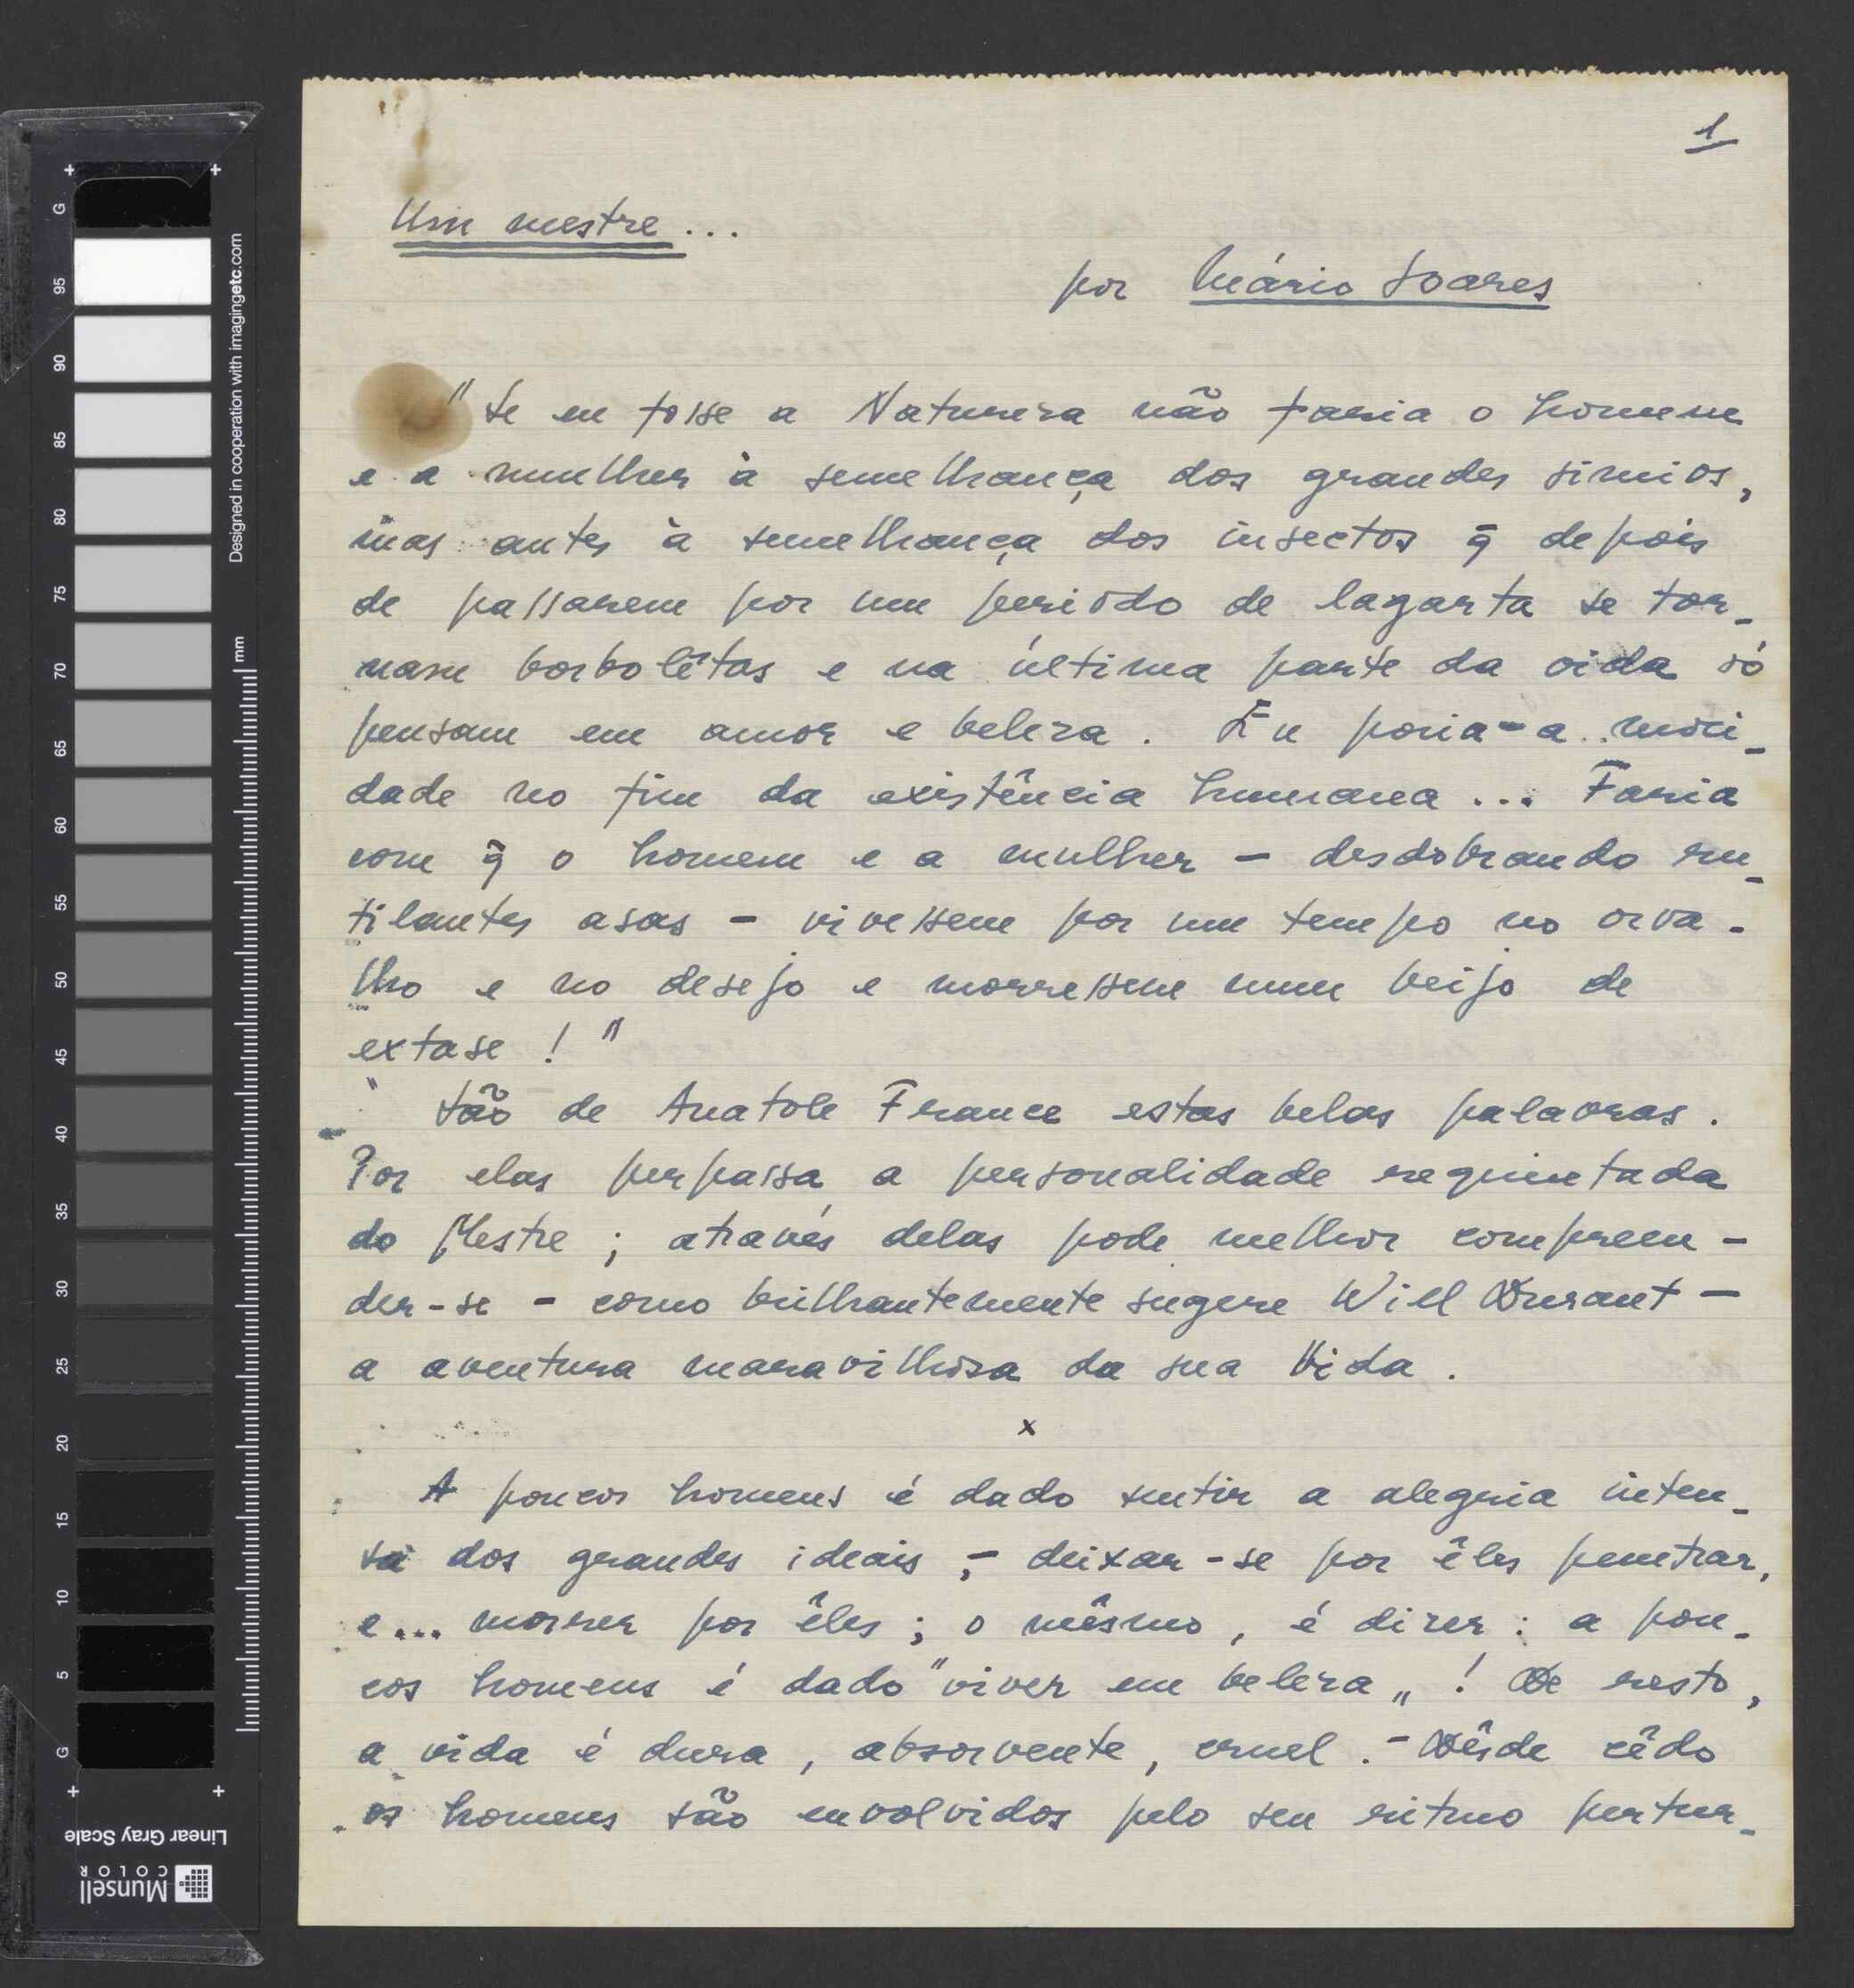 1
Um mestre...
por Mário Soares
"Se eu fosse a Natureza não faria o homem
e a mulher à semelhança dos grandes simios,
mas antes à semelhança dos insectos q̃ depois
de passarem por um periodo de lagarta se tor-
nam borbolêtas e na última parte da vida só
pensam em amor e beleza. Eu poria-a moci-
dade no fim da existência humana... Faria
com q̃ o homem e a mulher - desdobrando ru-
tilantes asas - vivessem por um tempo no orva-
lho e no desejo e morressem num beijo de
extase!"
São de Anatole France estas belas palavras.
Por elas perpassa a personalidade requintada
do Mestre; através delas pode melhor compreen-
der-se - como brilhantemente sugere Will Durant -
a aventura maravilhosa da sua Vida.
x
A poucos homens é dado sentir a alegria inten-
sa dos grandes ideais, - deixar-se por êles penetrar,
e... morrer por êles; o mêsmo, é dizer: a pou-
cos homens é dado "viver em belêza"! De resto,
a vida é dura, absorvente, cruel. - Dêsde cêdo
os homens são envolvidos pelo seu ritmo pertur-
G
95
90
85
80
75
70
65
60
55
50
45
40
35
30
25
20
15
10
5
G
mm
Designed in cooperation with imagingetc.com
Linear Gray Scale
Munsell
COLOR